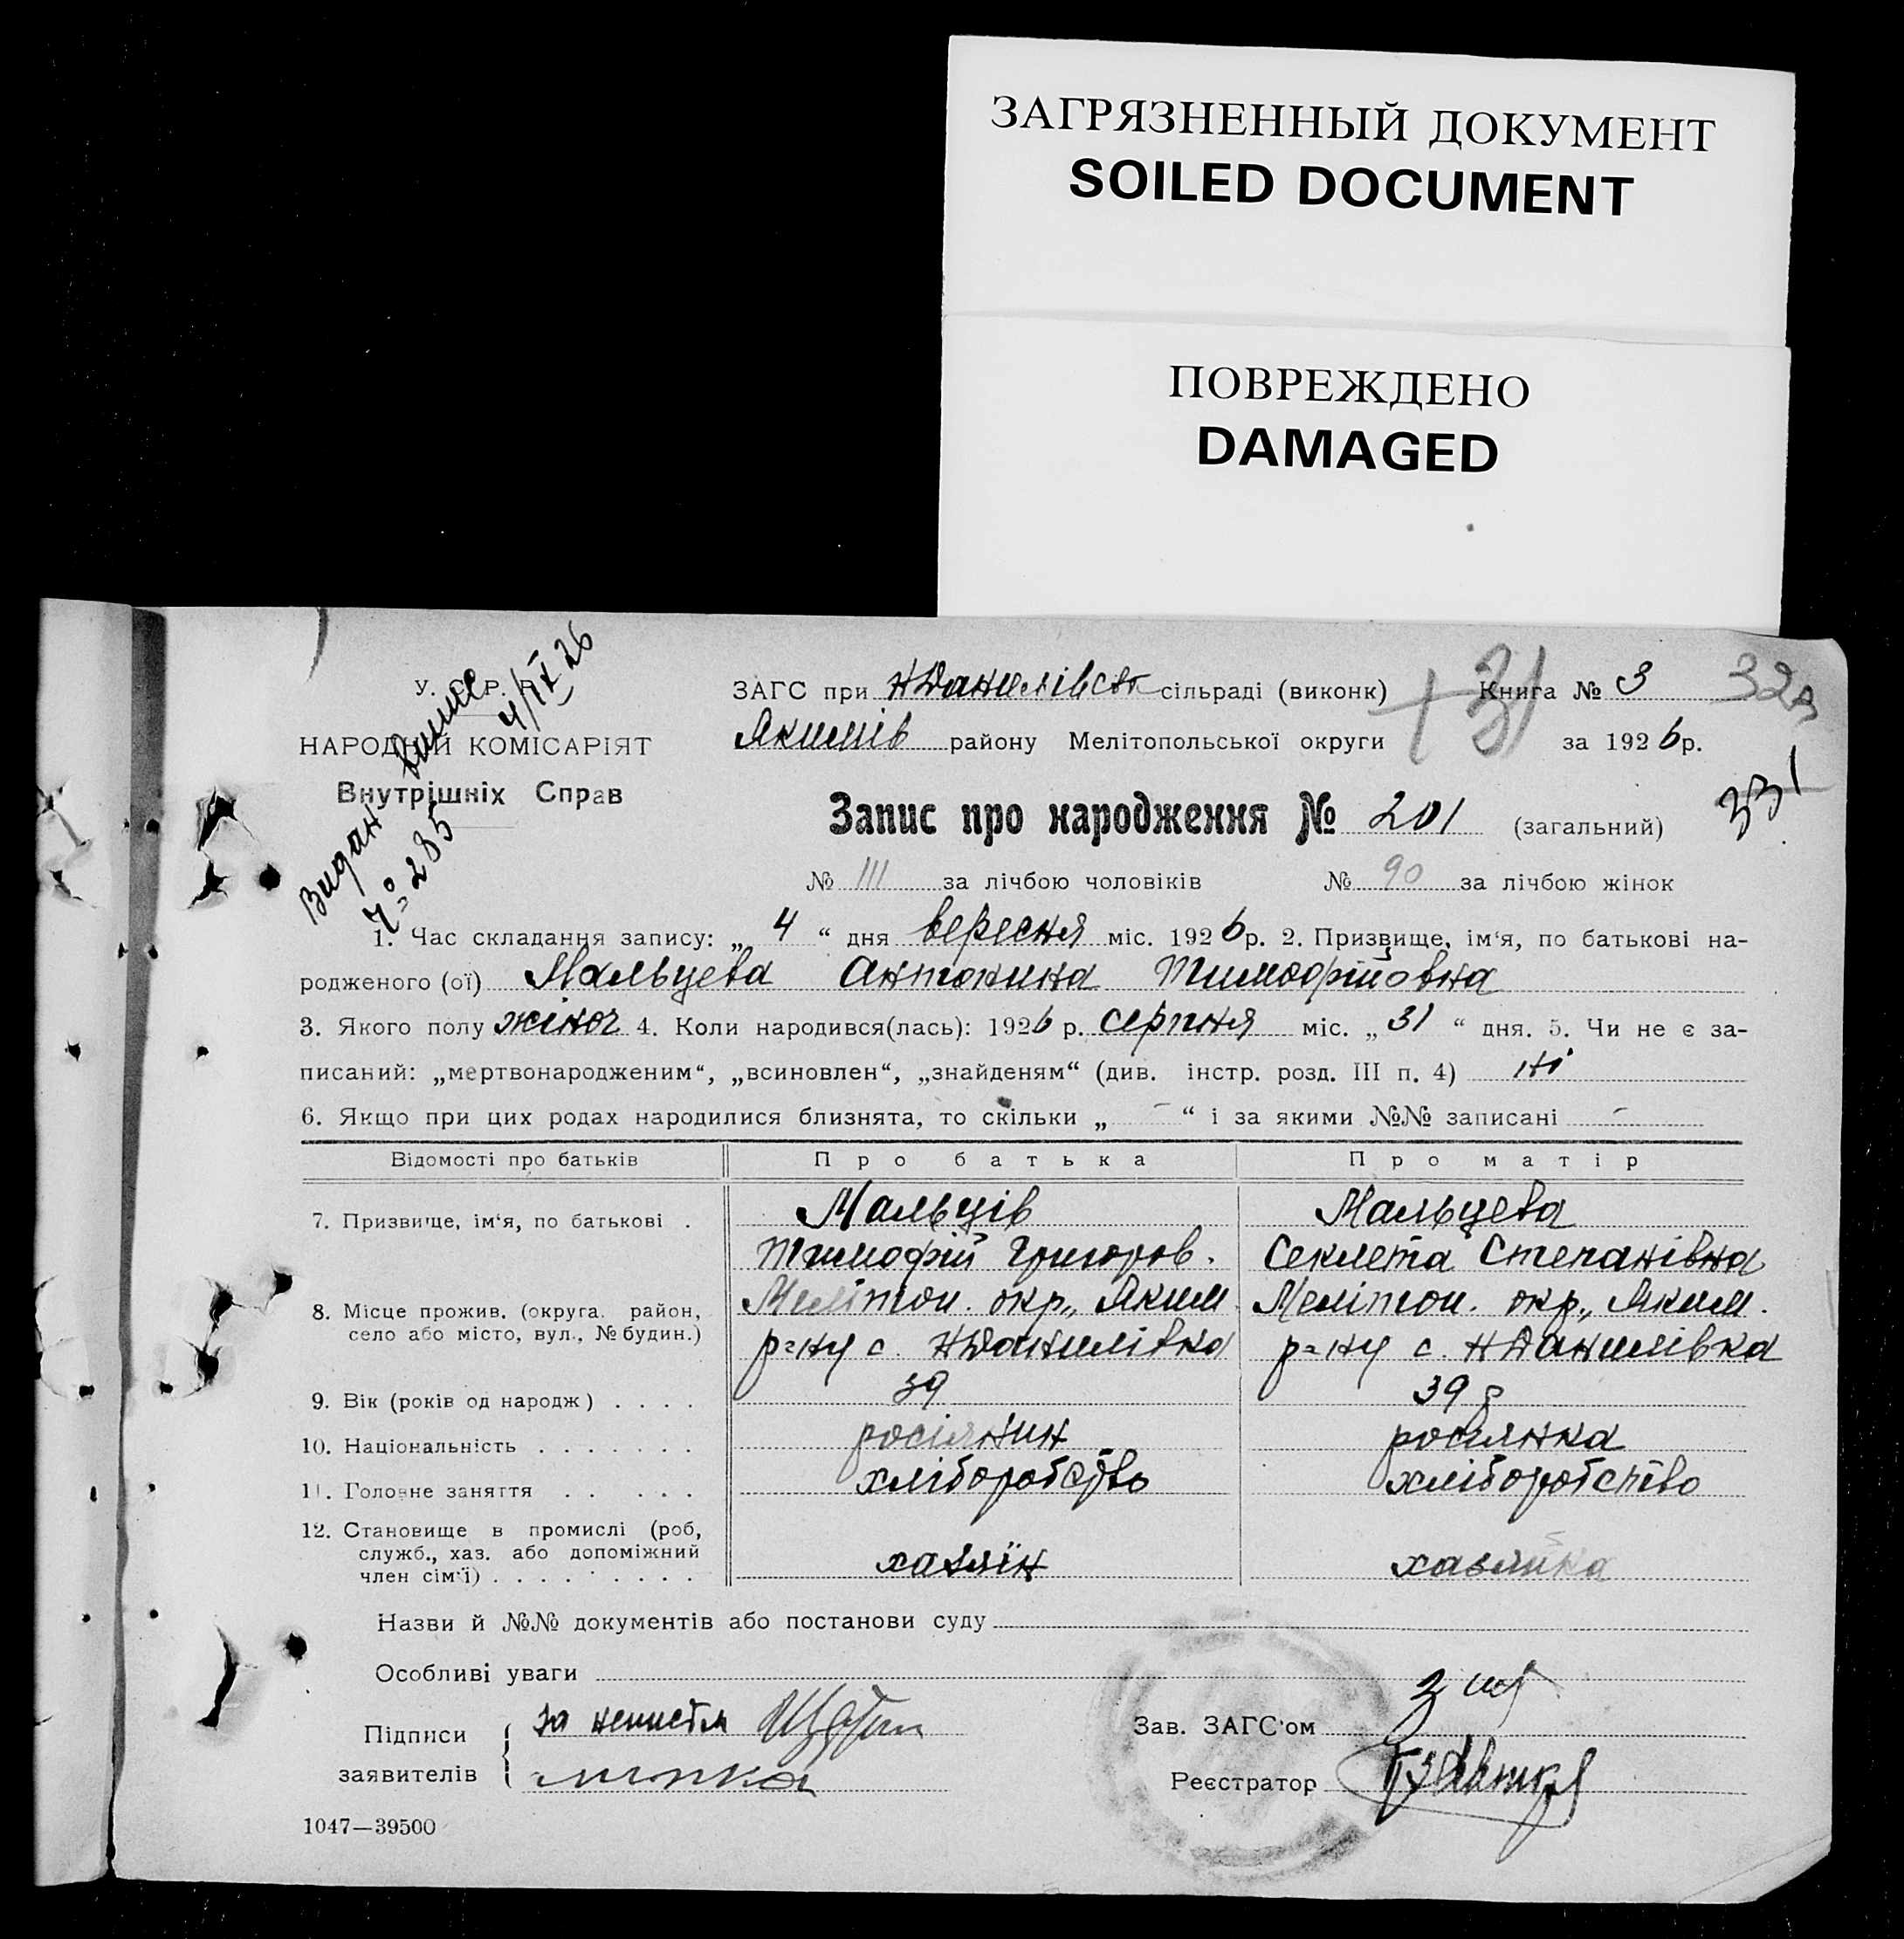 ЗАГРЯЗНЕННЫЙ ДОКУМЕНТ
SOILED DOCUMENT
ПОВРЕЖДЕНО
DAMAGED
У. С. Р. Р.
НАРОДНІЙ КОМІСАРІЯТ
Внутрішніх Справ
Видан виписе
№ 285 4/IX 26
ЗАГС при НДанилівськ сільраді (виконк) Книга № 3
Якимів району Мелітопольської округи за 1926 р.
31 32
331
Запис про народження № 201 (загальний)
№ 111 за лічбою чоловіків № 90 за лічбою жінок
1. Час складання запису: „ 4 “ дня вересня міс. 1926 р. 2. Призвище, ім‘я, по батькові на-
родженого (ої) Мальцева Антонина Тимофійовна
3. Якого полу жіноч 4. Коли народився(лась): 1926 р. серпня міс. „ 31 “ дня. 5. Чи не є за-
писаний: „мертвонародженим“, „всиновлен“, „знайденям“ (див. інстр. розд. III п. 4) ні
6. Якщо при цих родах народилися близнята, то скільки „ - “ і за якими №№ записані -
Відомості про батьків Про батька Про матір
7. Призвище, ім‘я, по батькові . Мальців Мальцева
Тимофій Григоров. Секлета Степанівна
8. Місце прожив. (округа. район, Меліт​оп. окр., Яким. Мелітоп. окр., Яким.
село або місто, вул., № будин.) р=ну с. НДанилівка р=ну с. НДанилівка
9. Вік (років од народж) . . . . 39 39 р
10. Національність . . . . . . . росіянин росіянка
11. Головне заняття . . . . . хліборобство хліборобство
12. Становище в промислі (роб,
служб., хаз. або допоміжний
член сім‘ї) . . . . . . . . . хазяїн хазяйка
Назви й №№ документів або постанови суду
Особливі уваги
Підписи за неписм
заявителів
Зав. ЗАГС‘ом
Реєстратор
1047—39500